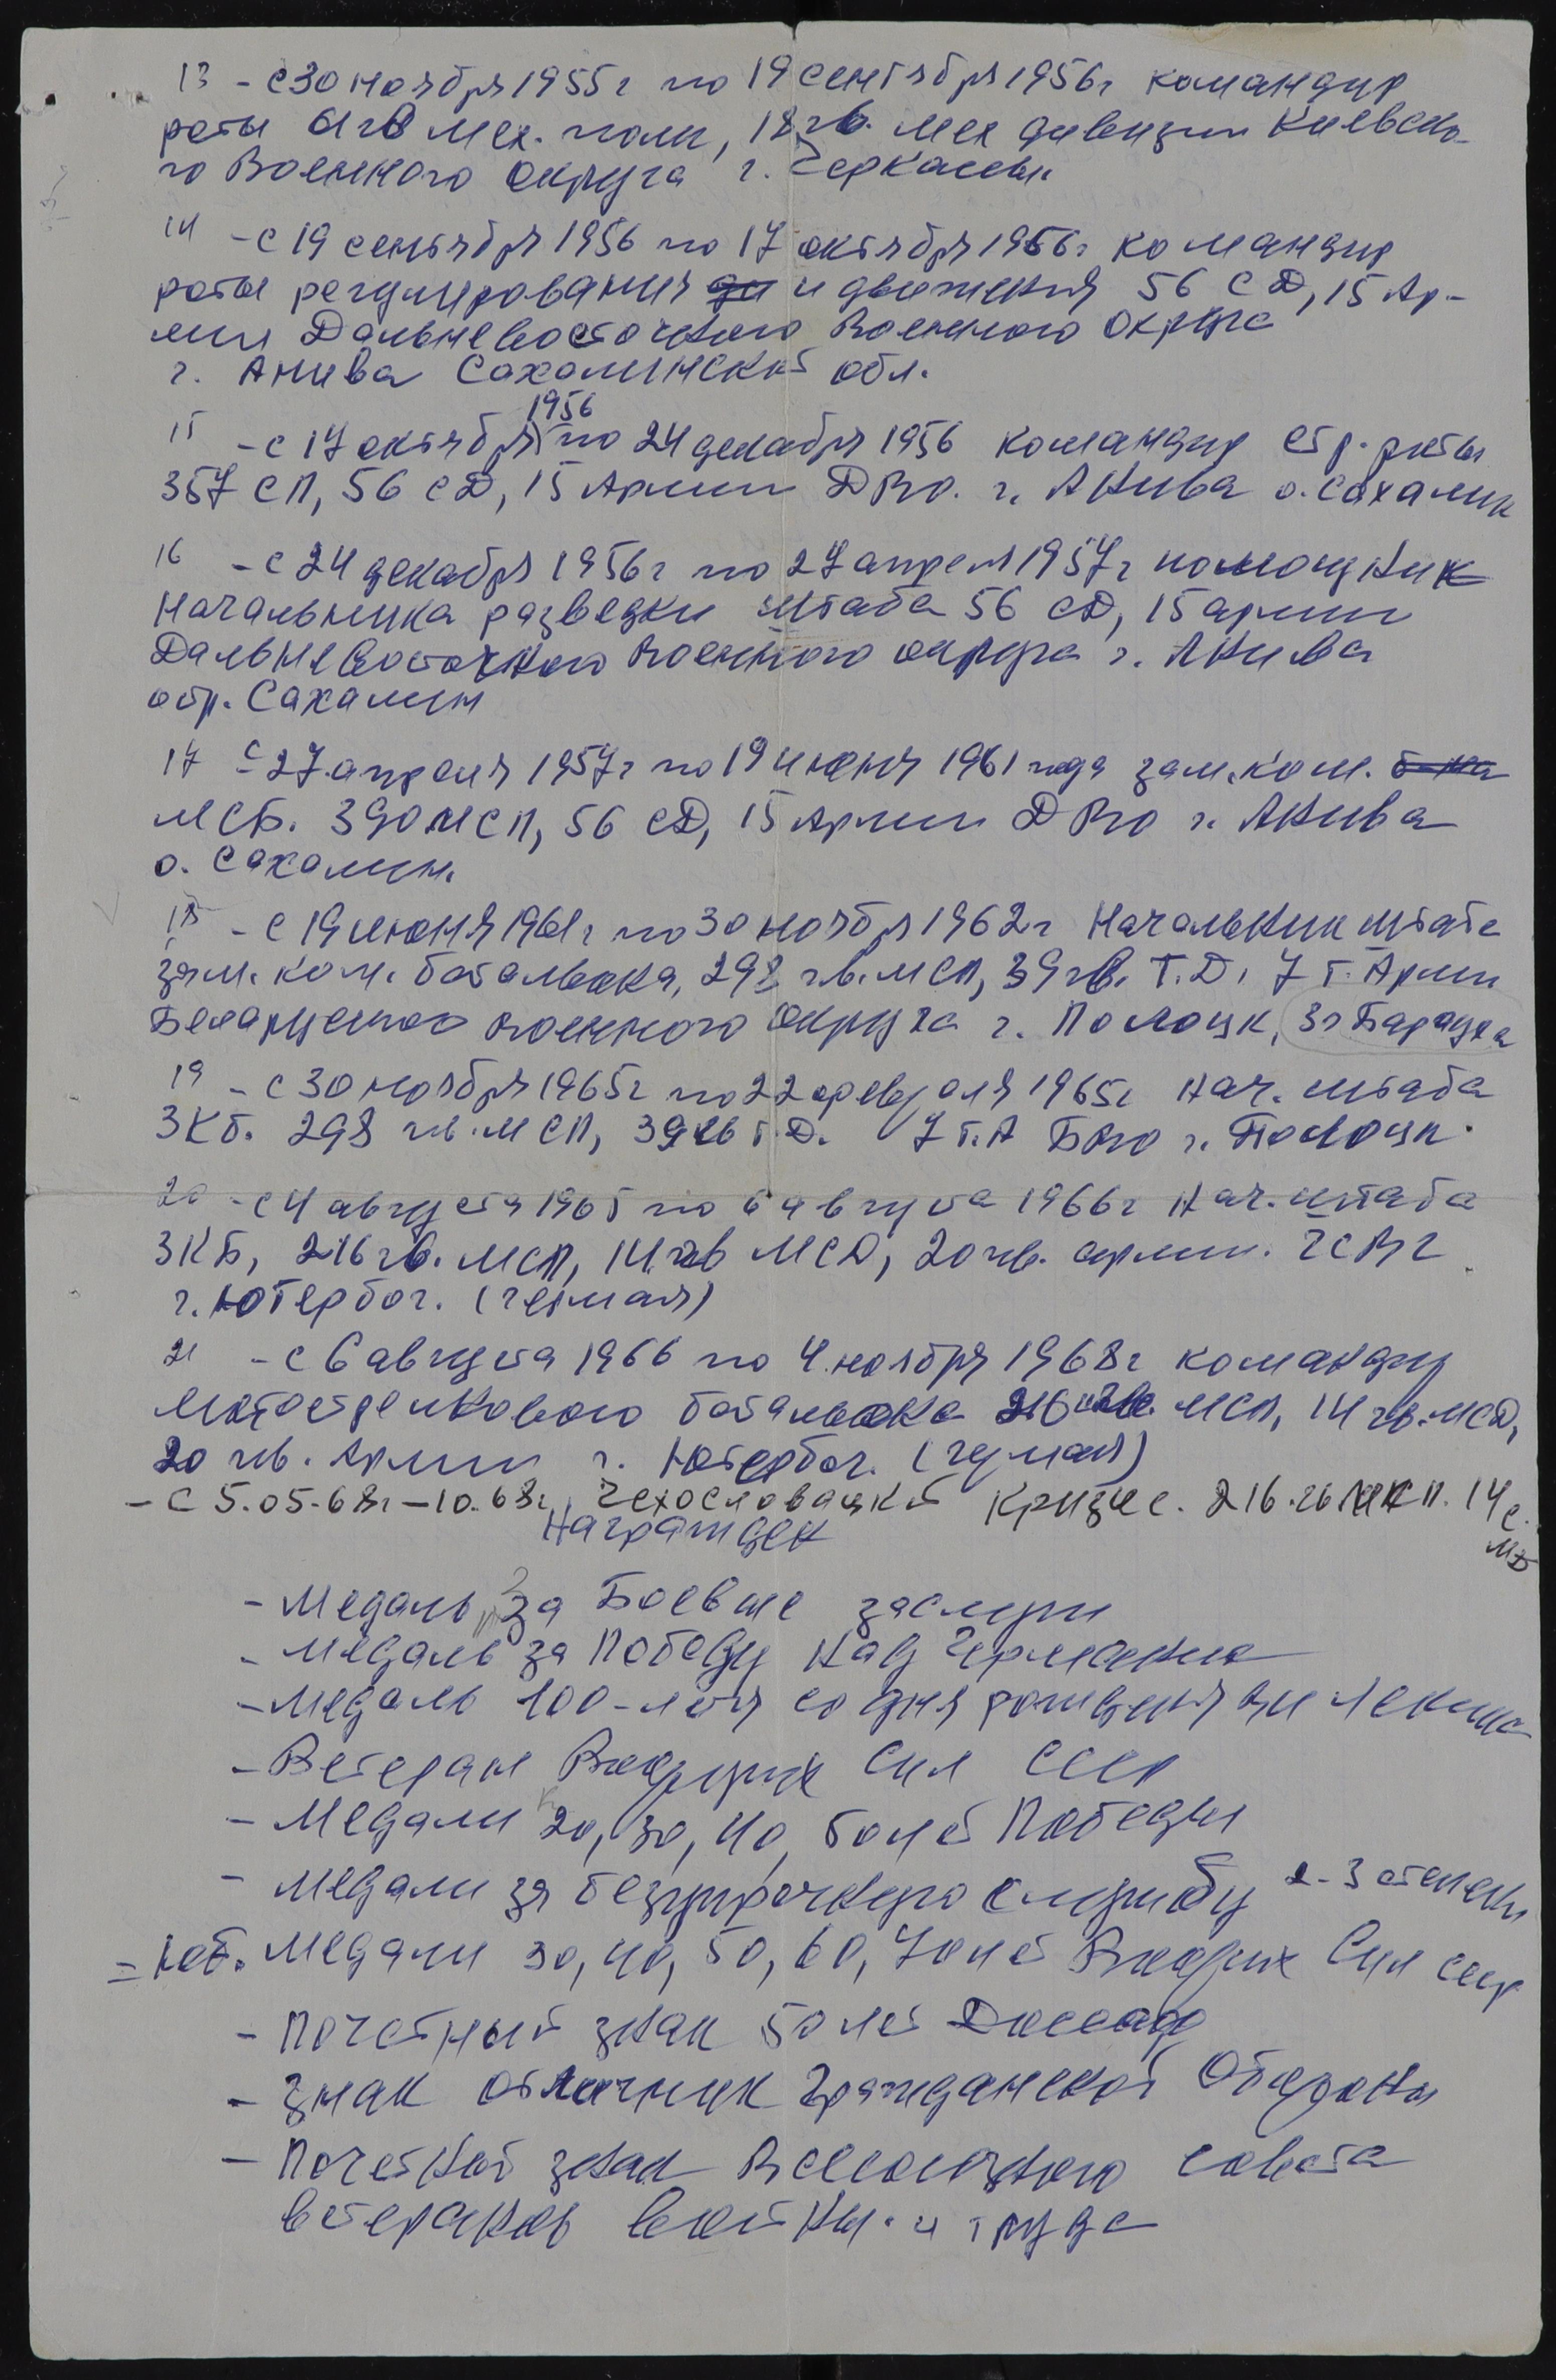 13 - с 30 ноября 1955г по 19 сентября 1956г командир
роты 61 гв мех. полк, 18 гв. мех дивизии Киевско-
го Военного округа г. Черкассы
14 - с 19 сентября 1956 по 17 октября 1956г командир
роты регулирования и движения 56 СД, 15 Ар-
мии Дальневосточного Военного Округа
г. Анива Сахалинской обл.
1956
15 - с 17 октября по 24 декабря 1956 командир стр. роты
357 СП, 56 СД, 15 Армии ДВо. г. Анива о. Сахалин
16 - с 24 декабря 1956г по 27 апреля 1957г помощник
Начальника разведки штаба 56 СД, 15 армии
Дальневосточного военного округа г. Анива
остр. Сахалин
17 с 27 апреля 1957г по 19 июня 1961 года зам. ком.
МСБ. 390 МСП, 56 СД, 15 Армии ДВо г. Анива
о. Сахалин.
18 - с 19 июня 1961г по 30 ноября 1962г Начальник штаба
зам. ком. батальона, 298 гв. МСП, 39 гв. Т.Д. 7 Т. Армии
Белорусского военного округа г. Полоцк,
19 - с 30 ноября 1965г по 22 февраля 1965г нач. штаба
3 Кб. 298 гв. МСП, 39 гв Т.Д. 7 т.А БВо г. Полоцк.
20 - с 4 августа 1965 по 6 августа 1966г Нач. штаба
3 КБ, 216 гв. МСП, 14 гв МСД, 20 гв. армии. ГСВГ
г. Ютербог. (гермая)
21 - с 6 августа 1966 по 4 ноября 1968г командир
мотострелкового батальона 216 гв. МСП, 14 гв. МСД,
20 гв. Армии г. Ютербог. (гермая)
- С 5.05-68г - 10.68г. Чехословацкий Кризис. 216. гв МСП. 14 с.
МД
Награжден
- Медаль За Боевые заслуги
- Медаль за Победу над Германией
- Медаль 100-летия со дня рождения ВИ Ленина
- Ветеран Вооружных Сил СССР
- Медали 20, 30, 40, 50 лет Победы
- Медали за безупречную службу 2-3 степени
= юб. Медали 30, 40, 50, 60, 70 лет Вооруж Сил ссср
- Почетный знак 50 лет Досааф
- Знак Отличник Гражданской Обороны
- Почетный знак Всесоюзного совета
ветеранов войны. и труда